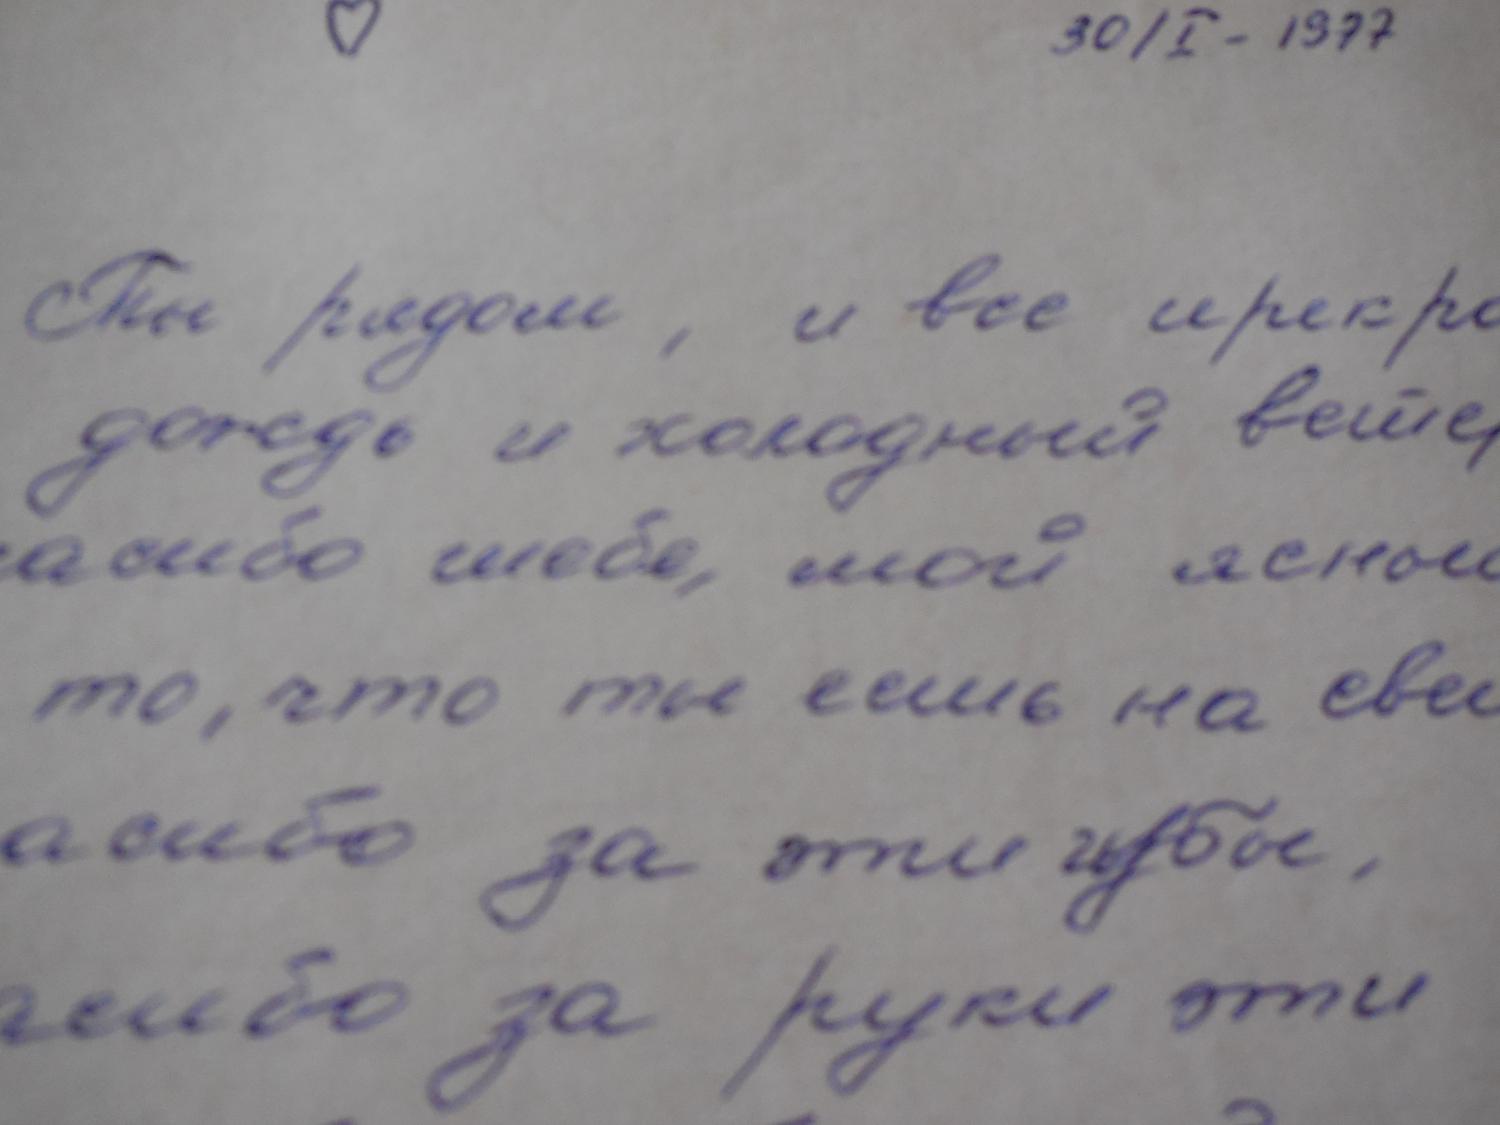 30/I - 1977
Ты рядом, и все прекра
дождь и холодный ветер
пасибо тебе, мой ясный
то, что ты есть на све
асибо за эти губы,
асибо за руки эти